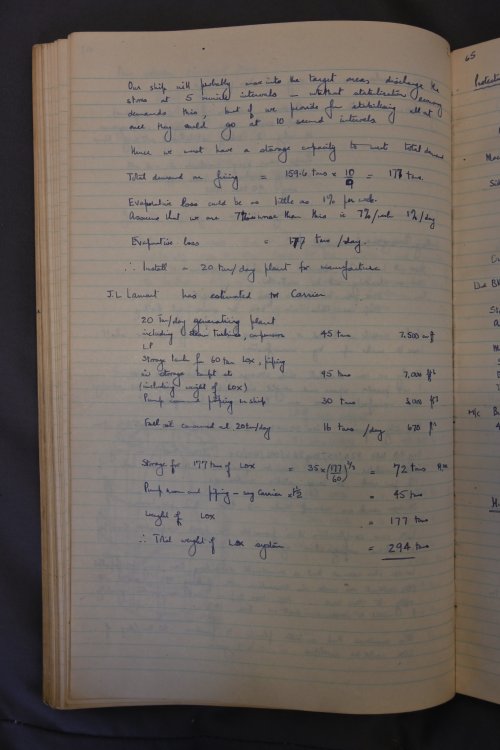 Our ship will probably move into the target area, discharge the
stores at 5 minute intervals — without stabilisation economy
demands this, but if we provide for stabilising all at
once they could go at 10 second intervals
Hence we must have a storage capacity to meet total demand
Total demand on firing = 159.6 tons × 10/9 = 177 tons.
Evaporative loss could be as little as 1% per week.
Assume that we are 7 times worse than this ie 7%/week 1%/day
Evaporative loss = 1.77 tons/day.
∴ Install a 20 ton/day plant for manufacture
J.L Lamont has estimated for Carrier
20 Ton/day generating plant
including steam Turbines, compressors 45 tons 7,500 cu ft
LP
Storage tanks for 60 ton LOX, piping
in storage kept at 95 tons 7,000 ft³
(including weight of LOX)
Pump room and piping in ship 30 tons 3,000 ft³
Fuel oil consumed at 20 ton/day 16 tons /day 670 ft³
Storage for 177 tons of LOX = 35 × (177/60)^2/3 = 72 tons
Pump room and piping – say Carrier × 1½ = 45 tons
weight of LOX = 177 tons
∴ Total weight of LOX system = 294 tons
65